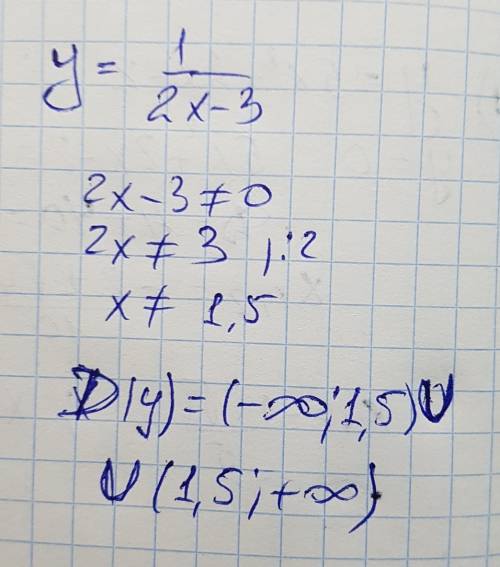 y = 1/(2x-3)
2x-3≠0
2x≠3 |:2
x≠1,5
D(y)=(-∞;1,5)∪
∪(1,5;+∞)